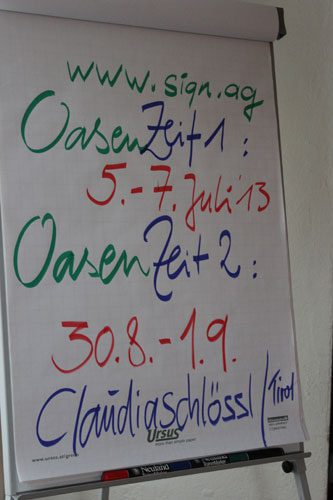 www.sign.ag
OasenZeit 1:
5.-7. Juli 13
OasenZeit 2:
30.8.-1.9.
Claudiaschlössl/Tirol
Ursus
www.ursus.at/green
Neuland
Neuland